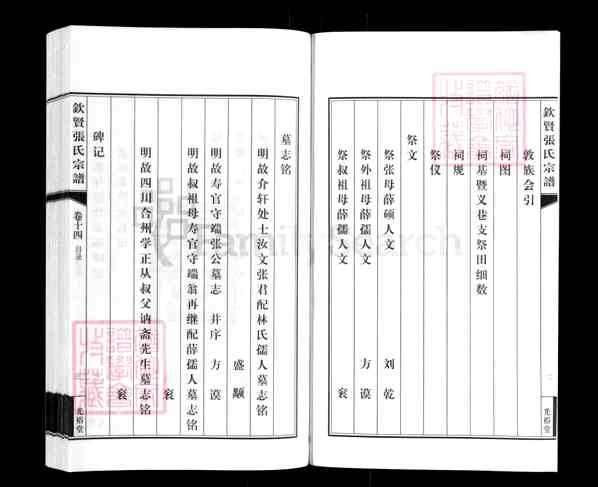 钦賢張氏宗譜
敦族会引
祠图
祠基暨义巷支祭田细数
祠规
祭仪
祭文
祭张母薛硕人文 刘乾
祭外祖母薛儒人文 方谟
祭叔祖母薛儒人文 衮
二
光裕堂
墓志铭
明故介轩处士汝文张君配林氏儒人墓志铭
盛颙
明故寿官守端张公墓志 并序 方谟
明故叔祖母寿官守端翁再继配薛儒人墓志铭
衮
明故四川合州学正从叔父讷斋先生墓志铭
衮
碑记
钦賢張氏宗譜
卷十四 目录
一
光裕堂
FamilySearch